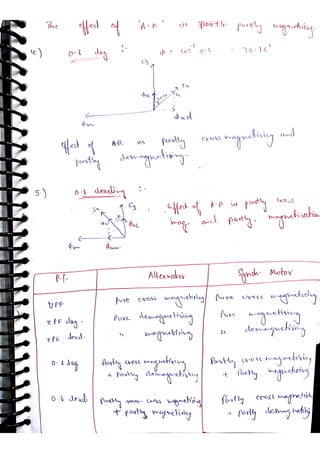 The effect of 'A.R' is purely magnetising.
4.) 0.8 lag :- φ = cos⁻¹ 0.8 = 36.86°
Eg
Ia
φm
Effect of AR is partly cross magnetising and
partly demagnetising.
5.) 0.8 leading :-
Ia Eg
Effect of A.R is partly cross
mag. and partly magnetisation
φm
P.f. Alternator Synch. Motor
UPF Pure cross magnetising Pure cross magnetising
ZPF lag. Pure demagnetising Pure magnetising
ZPF lead. " magnetising " demagnetising
0.8 lag Partly cross magnetising Partly cross magnetising
+ Partly demagnetising + Partly magnetising
0.8 lead Partly cross magnetising Partly cross magnetising
+ partly magnetising + partly demagnetising